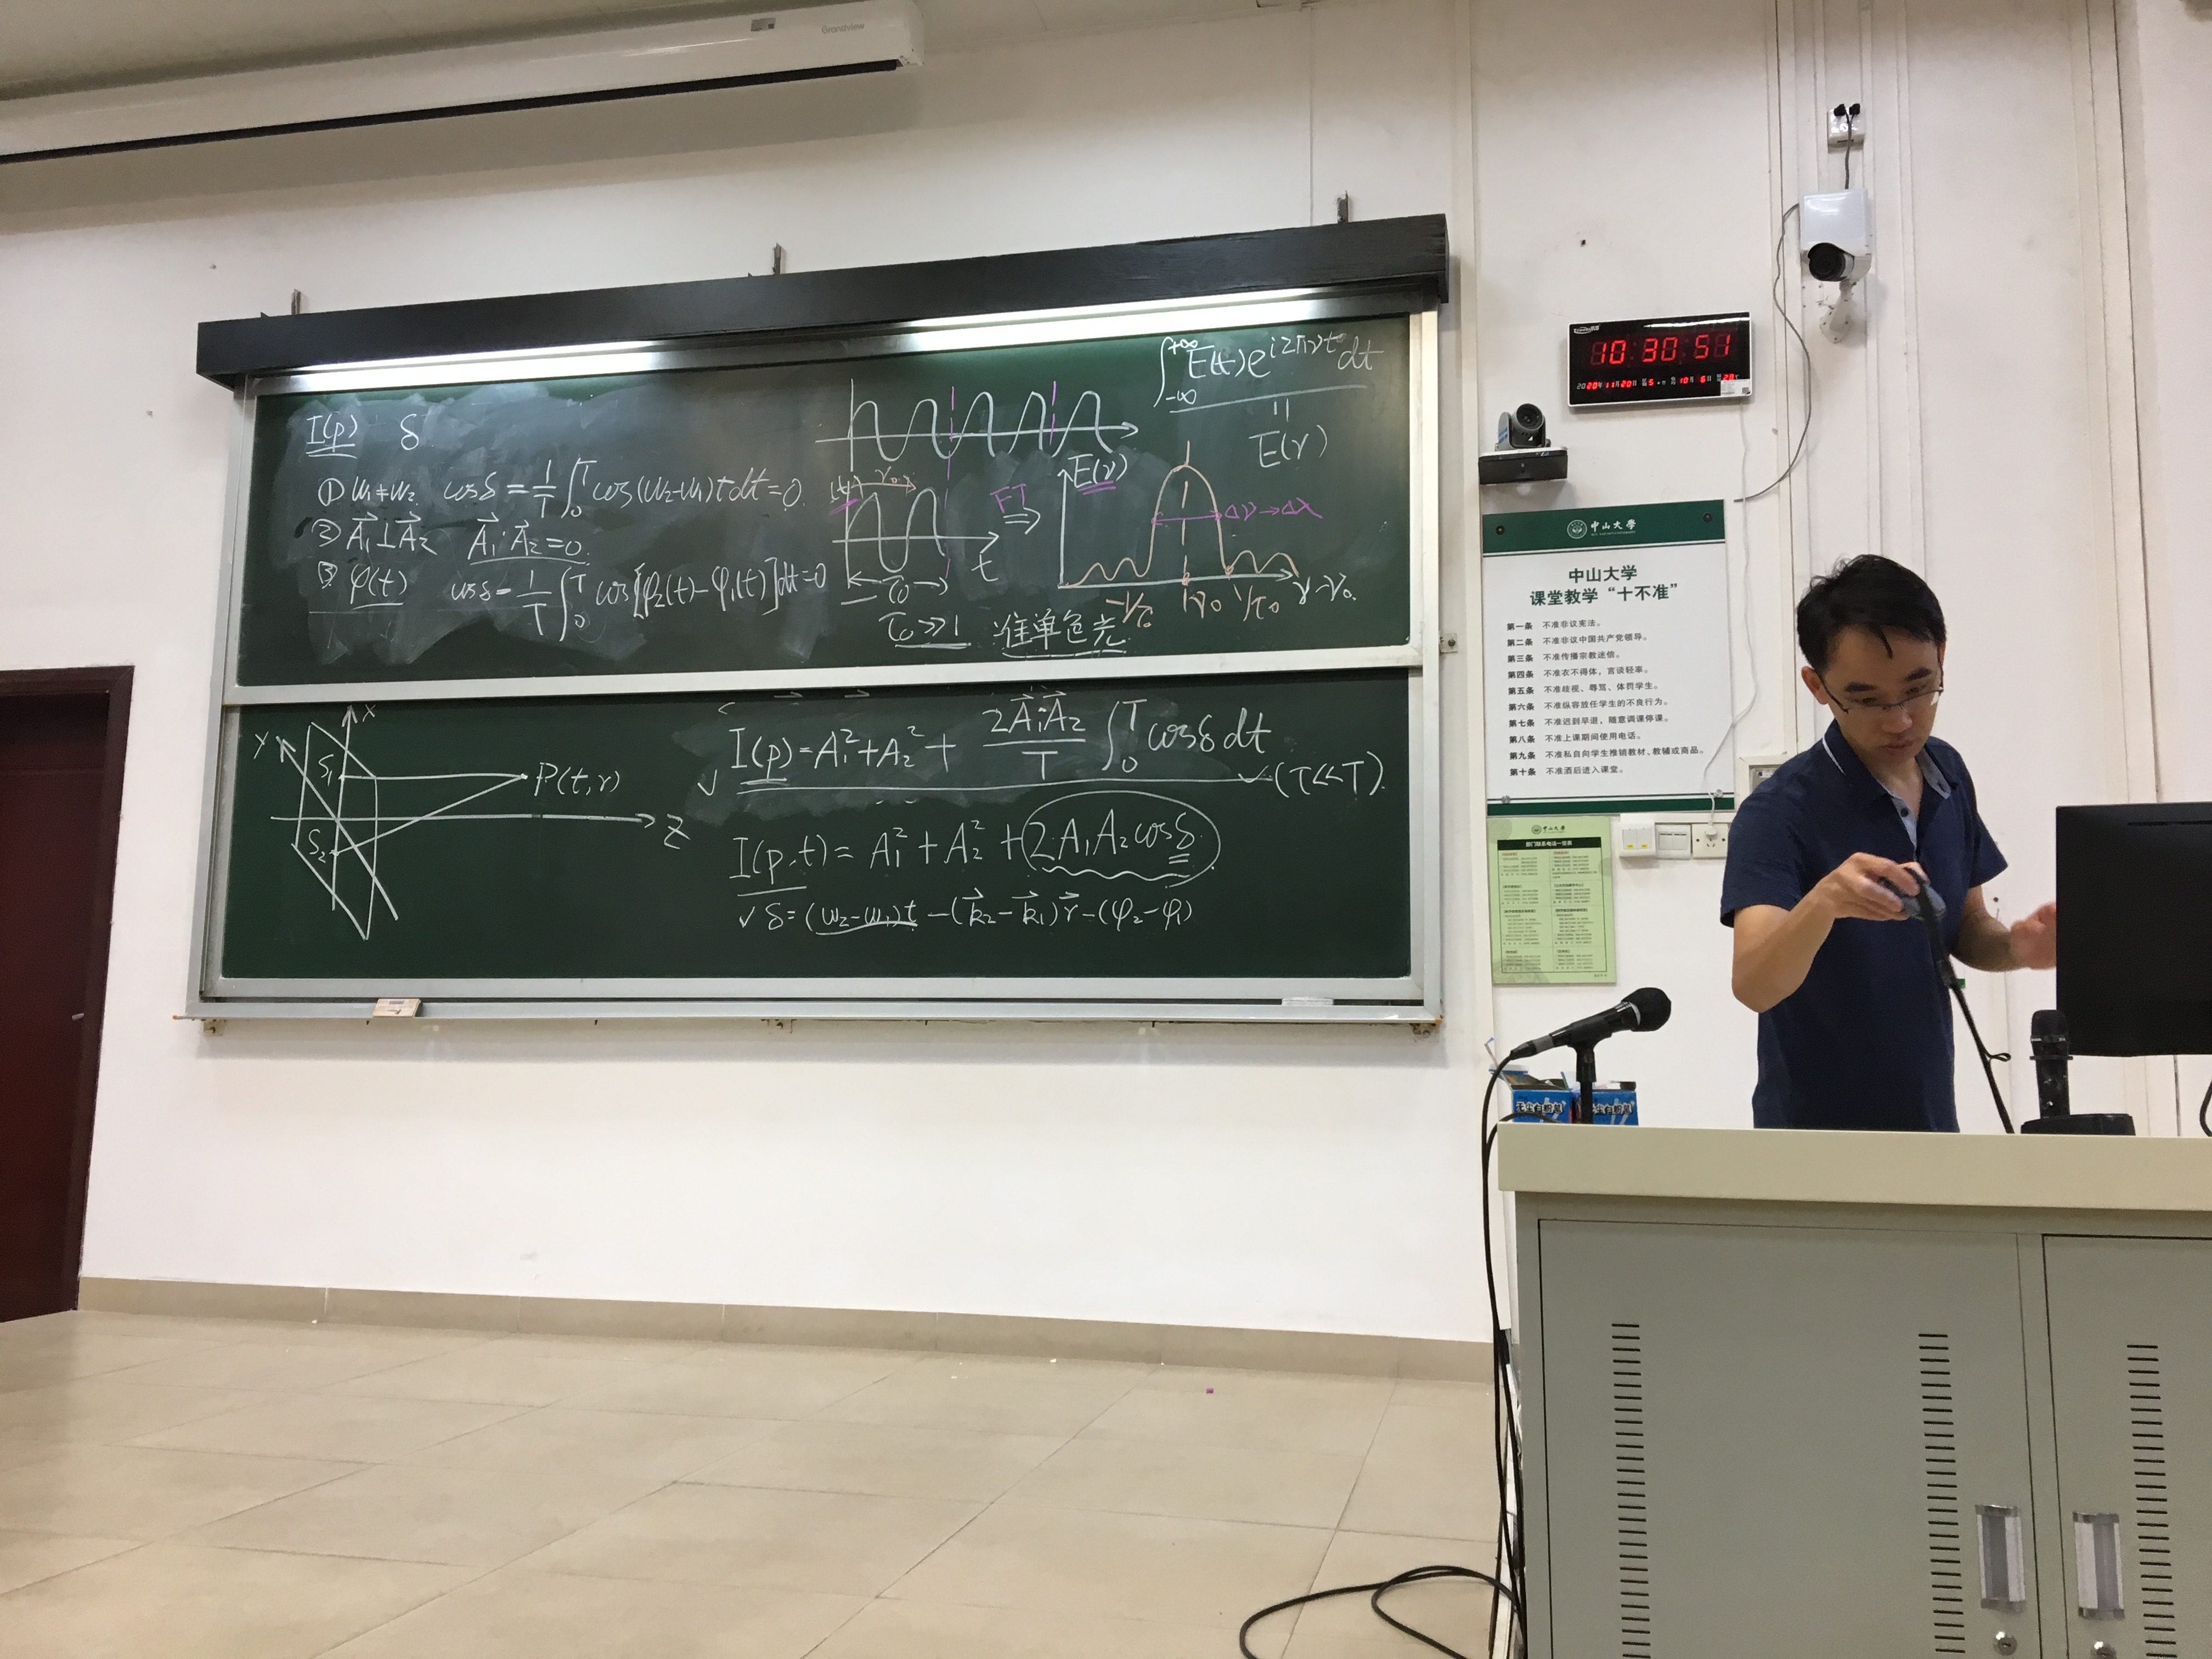 Grandview
I(p) δ
① w₁≠w₂ cosδ = 1/T ∫₀ᵀ cos(w₂-w₁)t dt = 0
② A⃗₁⊥A⃗₂ A⃗₁·A⃗₂=0
③ φ(t) cosδ = 1/T ∫₀ᵀ cos[φ₂(t)-φ₁(t)]dt=0
γ₀
t
τ₀
τ₀≫1 准单色光
FT
⇒
∫₋∞⁺∞ E(t)e^{i2πνt}dt
=
E(γ)
E(γ)
Δν→Δλ
-1/τ₀ γ₀ 1/τ₀ γ-γ₀
X
Y
S₁
P(t,r)
S₂
Z
I(p)=A₁²+A₂²+ 2A⃗₁·A⃗₂/T ∫₀ᵀ cosδ dt
✓ ✓ (T<<T)
I(p,t)= A₁²+A₂²+2A₁A₂cosδ
✓ δ=(w₂-w₁)t-(k⃗₂-k⃗₁)r⃗-(φ₂-φ₁)
10:30:51
2020年11月20日
中山大学
中山大学
课堂教学“十不准”
第一条 不准非议宪法。
第二条 不准非议中国共产党领导。
第三条 不准传播宗教迷信。
第四条 不准衣不得体，言谈轻率。
第五条 不准歧视、辱骂、体罚学生。
第六条 不准纵容放任学生的不良行为。
第七条 不准迟到早退，随意调课停课。
第八条 不准上课期间使用电话。
第九条 不准私自向学生推销教材、教辅或商品。
第十条 不准酒后进入课堂。
中山大学
部门联系电话一览表
无尘白粉笔
无尘白粉笔